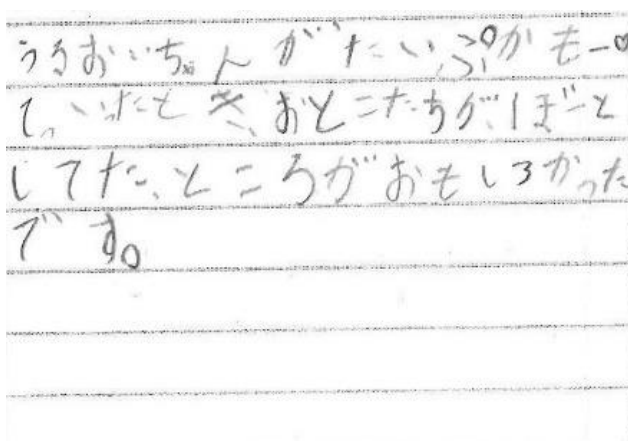 うるおいちゃんがたいぷかもー♡
って、いったときおとこたちがぼーと
してた、ところがおもしろかった
です。